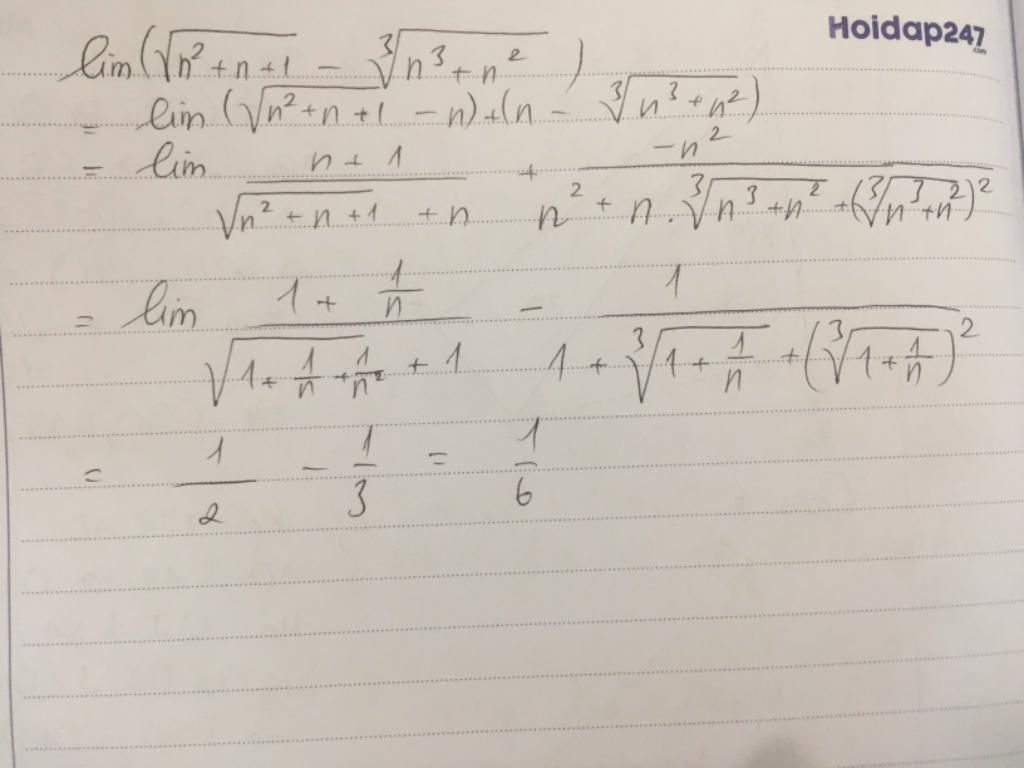 Hoidap247.com
lim(√(n² + n + 1) − ∛(n³ + n²))
= lim (√(n² + n + 1) − n) + (n − ∛(n³ + n²))
= lim (n + 1)/(√(n² + n + 1) + n) + (−n²)/(n² + n . ∛(n³ + n²) + (∛(n³ + n²))²)
= lim (1 + 1/n)/(√(1 + 1/n + 1/n²) + 1) − 1/(1 + ∛(1 + 1/n) + (∛(1 + 1/n))²)
= 1/2 − 1/3 = 1/6